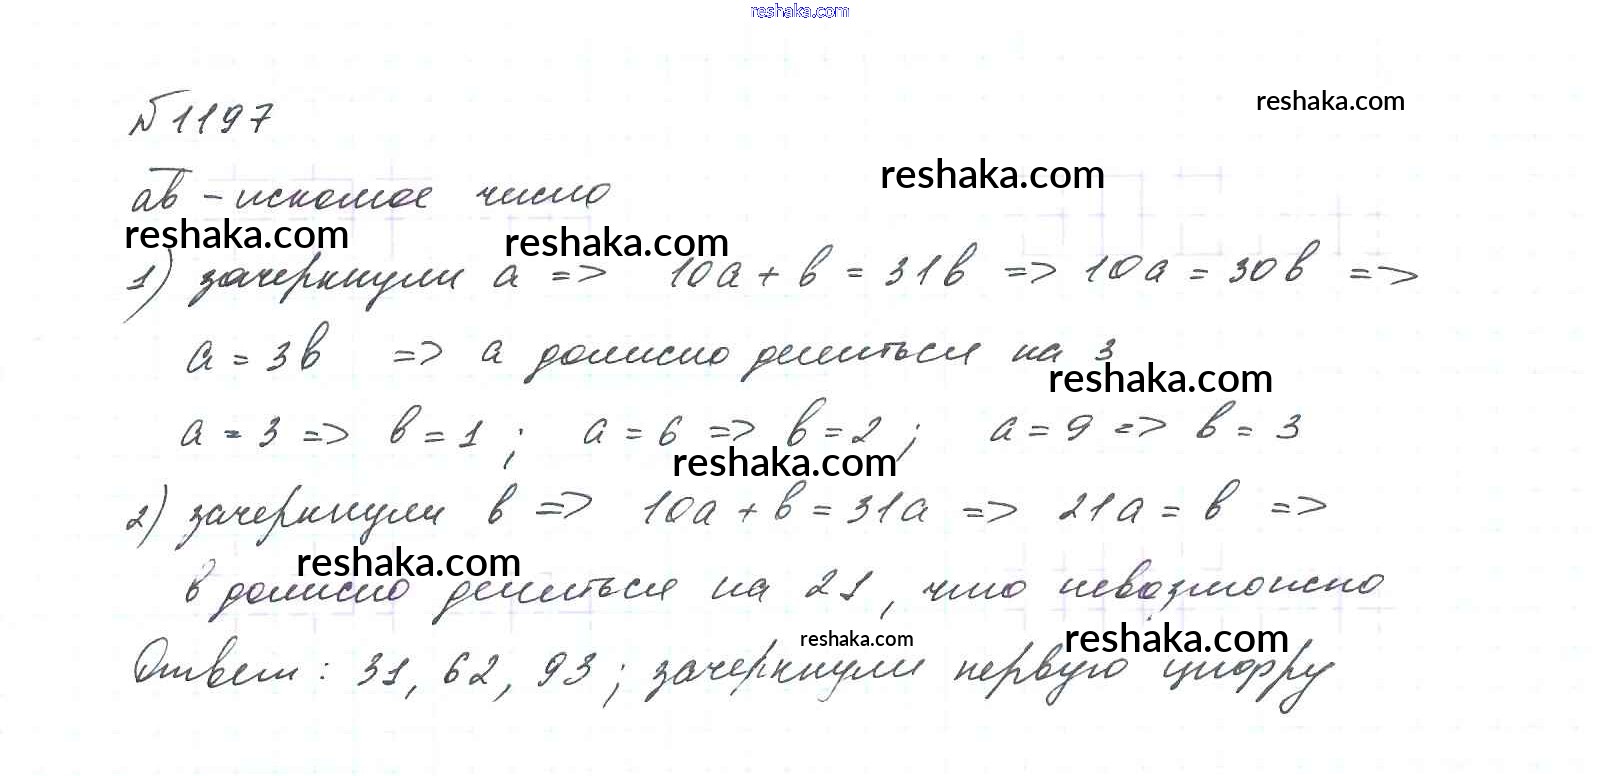 reshaka.com
№1197
reshaka.com
ab - искомое число
reshaka.com
reshaka.com
reshaka.com
1) зачеркнули a => 10a + b = 31b => 10a = 30b =>
a = 3b => a должно делиться на 3
reshaka.com
a = 3 => b = 1; a = 6 => b = 2; a = 9 => b = 3
reshaka.com
2) зачеркнули b => 10a + b = 31a => 21a = b =>
reshaka.com
b должно делиться на 21, что невозможно
reshaka.com
reshaka.com
Ответ: 31, 62, 93; зачеркнули первую цифру